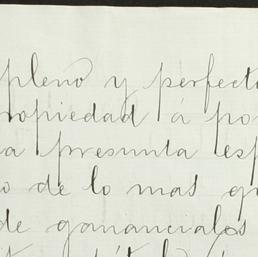 pleno y perfecto
ropiedad á po
a presunta esp
o de lo mas qu
de gananciales